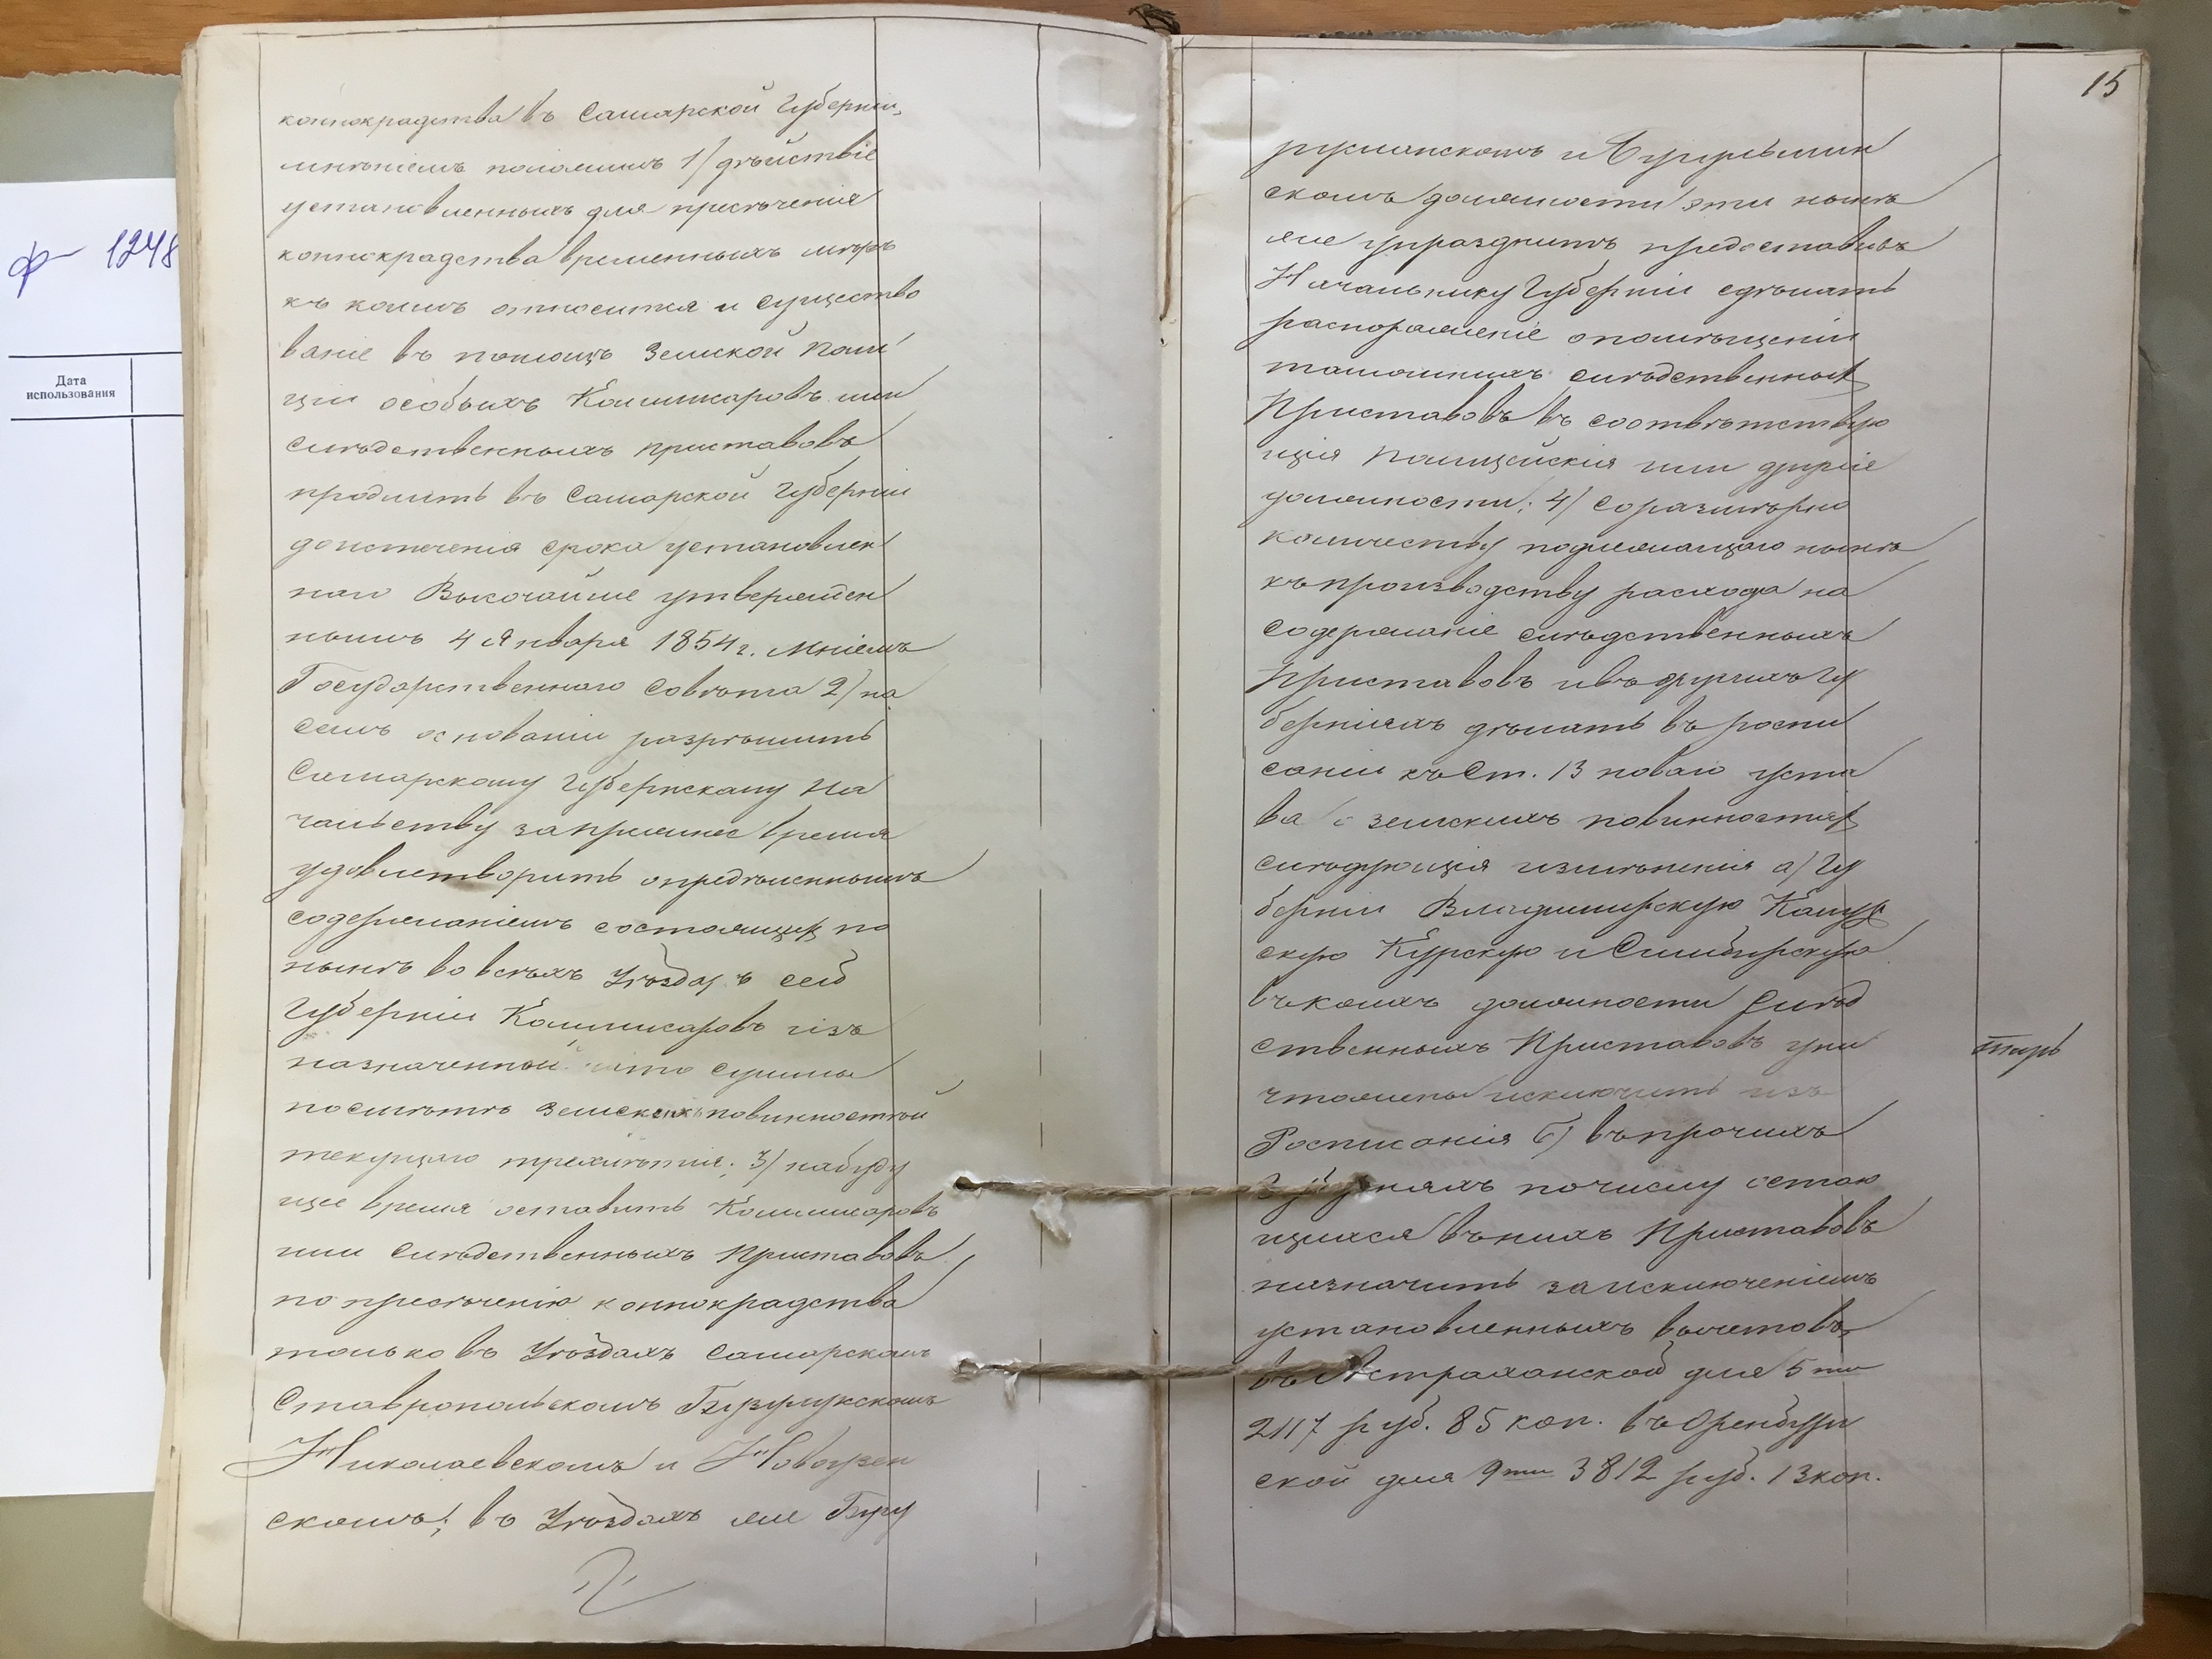 ф 1248
Дата
использования
конокрадства въ Самарской Губерніи,
мнѣніемъ положилъ 1/ дѣйствіе
установленныхъ для пресѣченія
конокрадства временныхъ мѣръ
къ коимъ относится и существо
ваніе въ помощь Земской Поли
ціи особыхъ Коммисаровъ или
слѣдственныхъ приставовъ
продлить въ Самарской Губерніи
до истеченія срока установлен
наго Высочайше утвержден
нымъ 4 Января 1854 г. Мніемъ
Государственнаго Совѣта 2/ на
семъ основаніи разрѣшить
Самарскому Губернскому На
чальству за прежнее время
удовлетворить опредѣленнымъ
содержаніемъ состоящихъ по
нынѣ во всѣхъ Уѣздахъ сей
Губерніи Коммисаровъ изъ
назначенной на то суммы
по смѣтѣ Земскихъ повинностей
текущаго трехлѣтія; 3/ на буду
щее время оставить Коммисаровъ
или Слѣдственныхъ Приставовъ
по пресѣченію конокрадства
только въ Уѣздахъ Самарскомъ
Ставропольскомъ Бузулукскомъ
Николаевскомъ и Новоузен
скомъ; въ Уѣздахъ же Бугу
15
русланскомъ и Бугульмин
скомъ должности эти нынѣ
же упразднить предоставивъ
Начальнику Губерніи сдѣлать
распоряженіе о помѣщеніи
тамошнихъ слѣдственныхъ
Приставовъ въ соотвѣтствую
щія Полицейскія или другіе
должности; 4/ Соразмѣрно
количеству подлежащаго нынѣ
къ производству расхода на
содержаніе слѣдственныхъ
Приставовъ и въ другихъ Гу
берніяхъ дѣлать въ роспи
саніи къ Ст. 13 новаго уста
ва о земскихъ повинностяхъ
слѣдующія измѣненія а/ Гу
берніи Владимирскую Калуж
скую Курскую и Симбирскую
въ коихъ должности Слѣд
ственныхъ Приставовъ уни
чтожены исключить изъ
Росписанія б/ въ прочихъ
Губерніяхъ по числу состоя
щихся въ нихъ Приставовъ
назначить за исключеніемъ
установленныхъ вычетовъ,
въ Астраханской для 5ти
2117 руб. 85 коп. въ Оренбург
ской для 9ти 3812 руб. 13 коп.